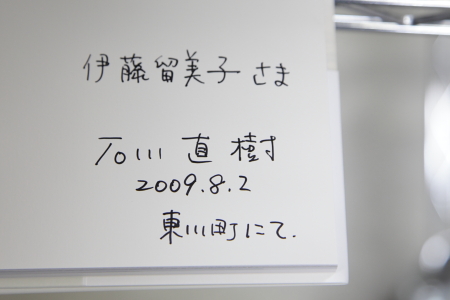 伊藤留美子さま
石川直樹
2009.8.2
東川町にて.